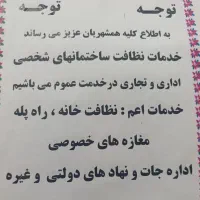 توجه توجه
به اطلاع کلیه همشهریان عزیز می رساند
خدمات نظافت ساختمانهای شخصی
اداری و تجاری درخدمت عموم می باشیم
خدمات اعم : نظافت خانه ، راه پله
مغازه های خصوصی
اداره جات و نهاد های دولتی و غیره